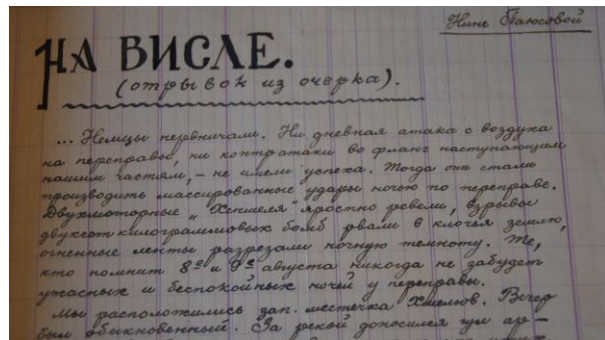 Нине Паюсовой
НА ВИСЛЕ.
(отрывок из очерка).
... Немцы нервничали. Ни дневная атака с воздуха
на переправы, ни контратаки во фланг наступающим
нашим частям, – не имели успеха. Тогда они стали
производить массированные удары ночью по переправе.
Двухмоторные „Хейнкеля" яростно ревели, взрывы
двухсот килограммовых бомб рвали в клочья землю,
огненные ленты разрезали ночную темноту. Те,
кто помнит 8е и 9е августа никогда не забудет
ужасных и беспокойных ночей у переправы.
Мы расположились зап. местечка Хмелюв. Вечер
был обыкновенный. За рекой доносился гул ар–